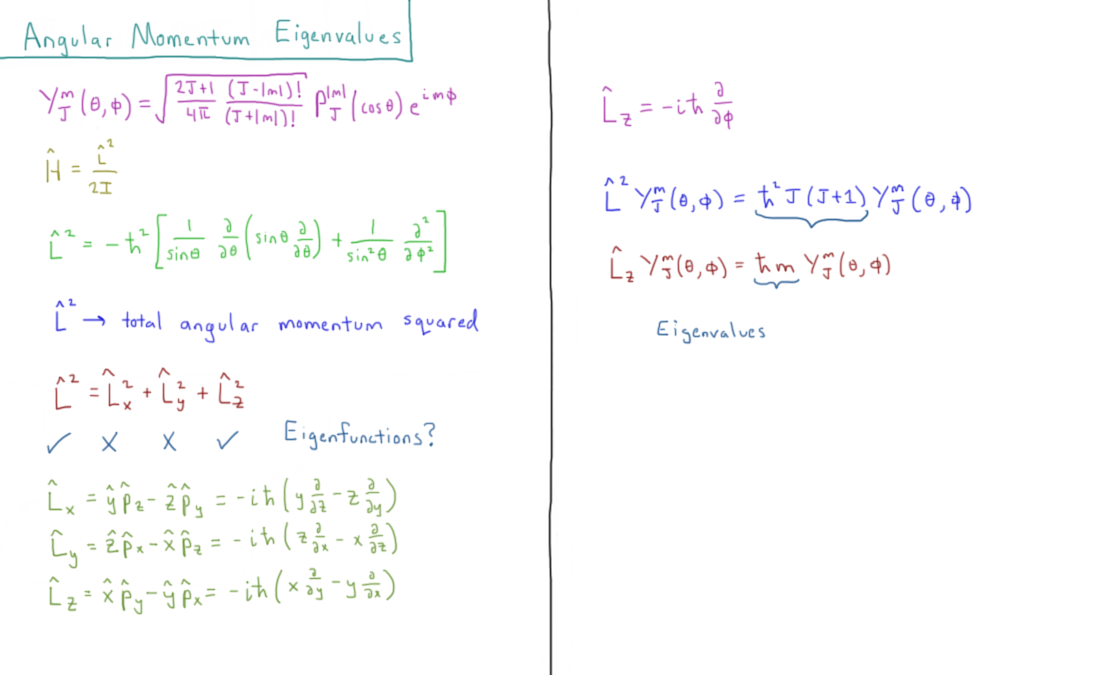 Angular Momentum Eigenvalues
Y_J^m(θ,φ) = √((2J+1)/(4π) (J-|m|)!/(J+|m|)!) P_J^|m|(cosθ) e^{imφ}
Ĥ = L̂²/2I
L̂² = -ħ²[1/sinθ ∂/∂θ(sinθ ∂/∂θ) + 1/sin²θ ∂²/∂φ²]
L̂² → total angular momentum squared
L̂² = L̂_x² + L̂_y² + L̂_z²
✓ X X ✓ Eigenfunctions?
L̂_x = ŷp̂_z - ẑp̂_y = -iħ(y ∂/∂z - z ∂/∂y)
L̂_y = ẑp̂_x - x̂p̂_z = -iħ(z ∂/∂x - x ∂/∂z)
L̂_z = x̂p̂_y - ŷp̂_x = -iħ(x ∂/∂y - y ∂/∂x)
L̂_z = -iħ ∂/∂φ
L̂² Y_J^m(θ,φ) = ħ²J(J+1) Y_J^m(θ,φ)
L̂_z Y_J^m(θ,φ) = ħm Y_J^m(θ,φ)
Eigenvalues